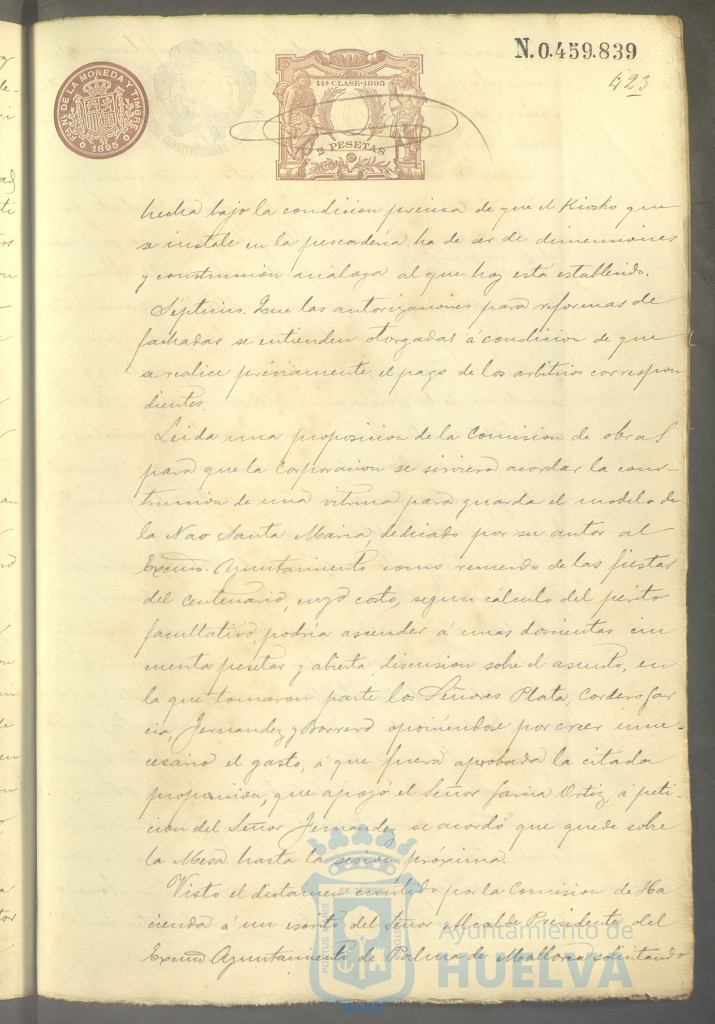 N.0.459.839
423
Fca. Nl. DE LA MONEDA Y TIMBRE
1895
11ª CLASE-1895
2 PESETAS
hecha bajo la condicion precisa de que el Kiosko que
se instale en la pescaderia, ha de ser de dimensiones
y construccion análoga al que hoy está establecido.
Séptimo. Que las autorizaciones para reformas de
fachadas se entienden otorgadas á condicion de que
se realice préviamente el pago de los arbitrios correspon
dientes.
Leida una proposicion de la Comision de obras
para que la Corporacion se sirviera acordar la cons-
truccion de una vitrina para guardar el modelo de
la Nao Santa Maria, dedicado por su autor al
Excmo. Ayuntamiento como recuerdo de las fiestas
del Centenario, cuyo costo, segun cálculo del perito
facultativo, podria ascender á unas doscientas cin
cuenta pesetas y abierta discusion sobre el asunto, en
la que tomaron parte los Señores Plata, Cordero, Gar
cia, Fernandez y Borrero oponiéndose por creer inne-
cesario el gasto, á que fuera aprobada la citada
proposicion, que apoyó el Señor Garcia Ortiz, á peti-
cion del Señor Fernandez, se acordó que quede sobre
la Mesa hasta la sesion próxima.
Visto el dictamen emitido por la Comision de Ha
cienda á un escrito del Señor Alcalde Presidente del
Excmo Ayuntamiento de Palma de Mallorca solicitando
Ayuntamiento de
HUELVA